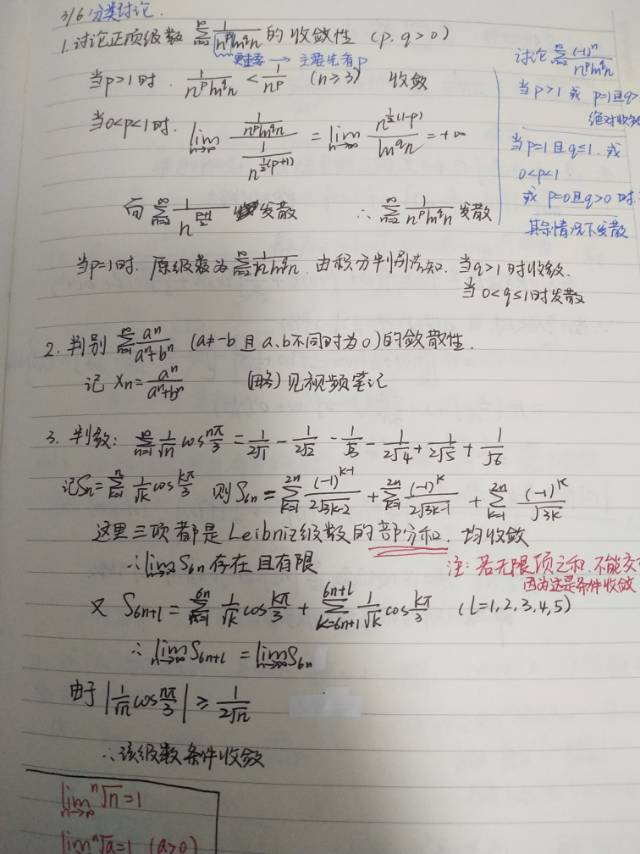 3/6 分类讨论.
1. 讨论正项级数 ∑ 1/(n^p ln^q n) 的收敛性 (p, q > 0)
→ 主要先看p
当p>1时. 1/(n^p ln^q n) < 1/n^p (n≥3) 收敛
当0<p<1时. lim n→∞ (1/(n^p ln^q n))/(1/n^{½(p+1)}) = lim n→∞ n^{½(1-p)}/ln^q n = +∞
而 ∑ 1/n^{(p+1)/2} 发散 ∴ ∑ n=2 ∞ 1/(n^p ln^q n) 发散
当p=1时. 原级数为 ∑ 1/(n ln^q n). 由积分判别法知. 当q>1时收敛.
当0<q≤1时发散
讨论 ∑ (-1)^n/(n^p ln^q n)
当p>1 或 p=1且q>
绝对收敛
当p=1且q≤1. 或
0<p<1
或 p=0且q>0 时.
其余情况下发散
2. 判别 ∑ a^n/(a^n+b^n) (a≠-b 且 a、b不同时为0) 的敛散性.
记 Xn = a^n/(a^n+b^n) (略) 见视频笔记
3. 判敛: ∑ n=1 ∞ 1/√n cos nπ/3 = 1/(2√1) - 1/(2√2) - 1/√3 - 1/(2√4) + 1/(2√5) + 1/√6
记Sn = ∑ k=1 n 1/√k cos kπ/3 则 S6n = ∑ k=1 2n (-1)^{k-1}/(2√(3k-2)) + ∑ k=1 2n (-1)^k/(2√(3k-1)) + ∑ k=1 2n (-1)^k/√(3k)
这里三项都是Leibniz级数的部分和. 均收敛
∴ lim n→∞ S6n 存在且有限
注: 若无限项之和, 不能交
因为这是条件收敛
又 S6n+l = ∑ k=1 6n 1/√k cos kπ/3 + ∑ k=6n+1 6n+l 1/√k cos kπ/3 (l=1,2,3,4,5)
∴ lim n→∞ S6n+l = lim n→∞ S6n
由于 |1/√n cos nπ/3| ≥ 1/(2√n)
∴ 该级数条件收敛
lim n→∞ ⁿ√n = 1
lim ⁿ√a = 1 (a>0)